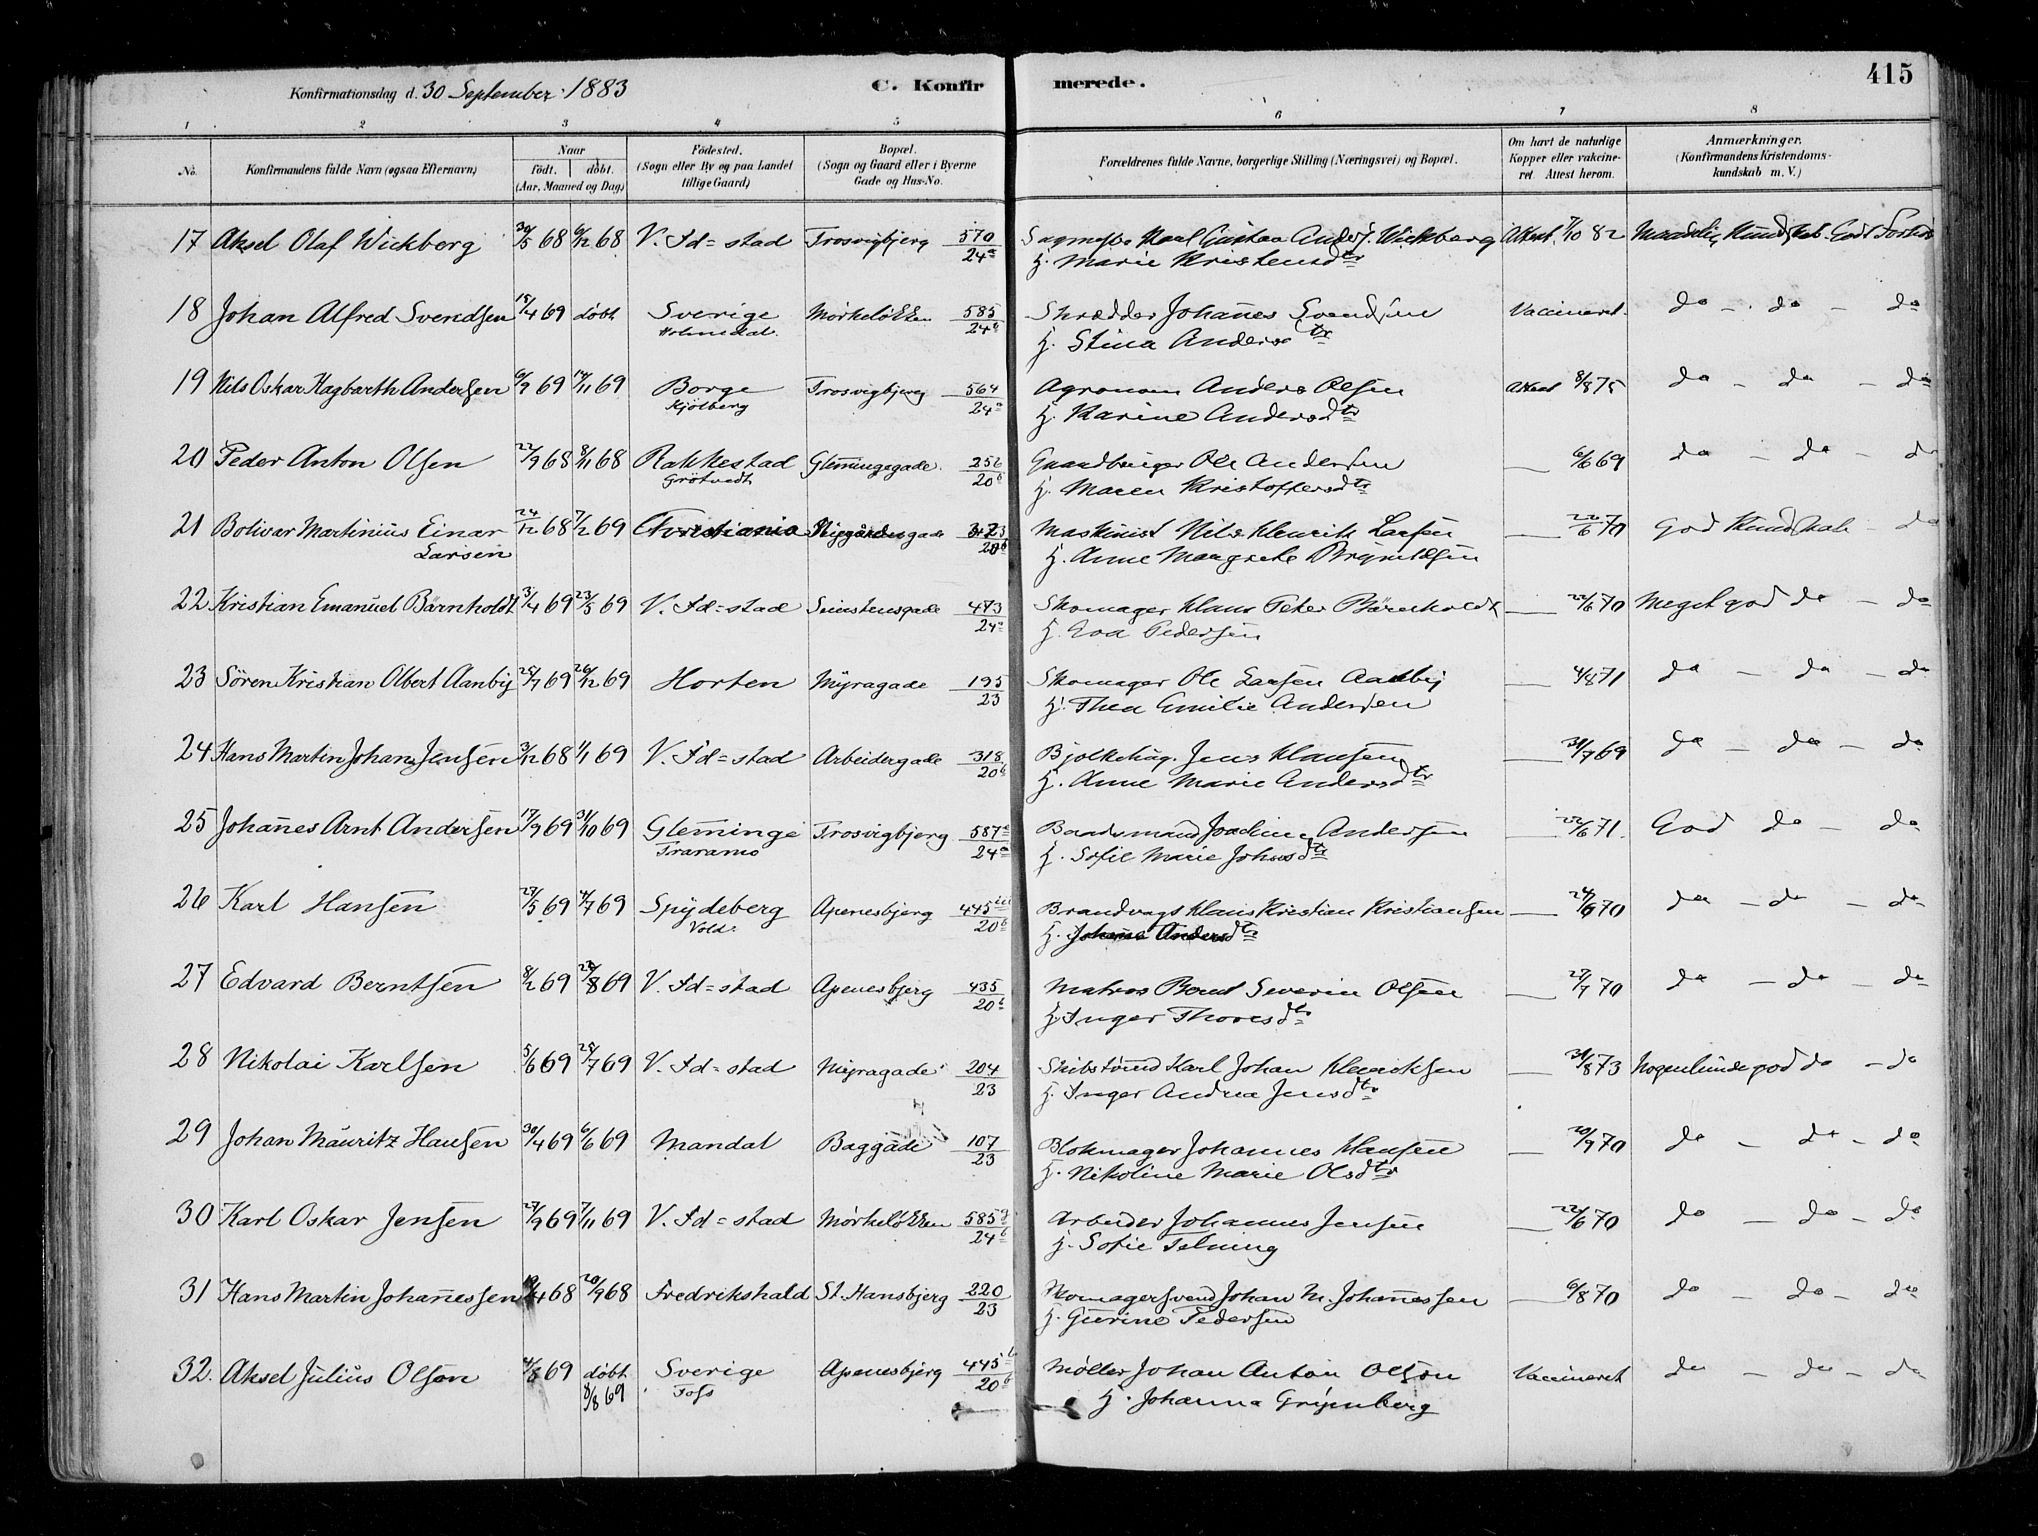 Konfirmationsdag d. 30 September 1883 C. Konfirmerede. 415
1 2 3 4 5 6 7 8
No. Konfirmandens fulde Navn (ogsaa Efternavn) Naar født. døbt. (Aar, Maaned og Dag) Fødested. (Sogn eller By og paa Landet tillige Gaard) Bopæl. (Sogn og Gaard eller i Byerne Gade og Hus-No. Forældrenes fulde Navne, borgerlige Stilling (Næringsvei) og Bopæl. Om havt de naturlige Kopper eller vakcineret. Attest herom. Anmærkninger. (Konfirmandens Kristendomskundskab m. V.)
17 Aksel Olaf Wickberg 30/5 68 6/12 68 V. Fd=stad Trosvigbjerg 570/24a Karl Gustav Anders. Wickberg Attest 7/10 82 Maadelig Kundskab. Godt Forhold
H. Marie Kristensdtr
18 Johan Alfred Svendsen 15/4 69 døbt Sverige Holmedal. Mørkeløkken 585/24b Skrædder Johannes Svendsen Vaccineret. do - do - do
H. Stina Andersdtr
19 Nils Oskar Hagbarth Andersen 6/9 69 14/11 69 Borge Kjølberg Trosvigbjerg 564/24a Agronom Anders Olsen Attest 8/8 75 do - do - do
H. Karine Andersdtr
20 Peder Anton Olsen 22/9 68 8/11 68 Rakkestad Grøtvedt Glemmingegade. 256/20b Gaardbruger Ole Andersen — 6/6 69 do - do - do
H. Maren Kristoffersdtr
21 Bolivar Martinius Einar Larsen 24/12 68 7/2 69 Kristiania Nygaardsgade 20b Maskinist Nils Henrik Larsen — 22/6 70 God Kundskab - do
H. Anne Margrete Bryni
22 Kristian Emanuel Bärnholdt 3/4 69 23/5 69 V. Fd=stad 473/24a Skomager Klaus Peter Bärnholdt — 22/6 70 Meget god do - do
H. Eva Pedersen
23 Sören Kristian Olbert Aanby 25/7 69 26/12 69 Horten Myragade 195/23 Skomager Ole Larsen Aanby — 4/8 71 do - do - do
H. Thea Emilie Andersen
24 Hans Martin Johan Jensen 3/12 68 1/1 69 V. Fd=stad Arbeidergade 318/20b Bjelkehug. Jens Hansen — 31/7 69 do - do - do
H. Anne Marie Andersdtr
25 Johannes Arnt Andersen 17/9 69 31/10 69 Glemminge Traramo Trosvigbjerg 587/24a Baadsmand Joachim Andersen — 22/6 71. God do - do
H. Sofie Marie Johnsdtr
26 Karl Hansen 27/5 69 4/7 69 Spydeberg Vold. Apenesbjerg 445/20b Brandvagt Hans Kristian Kristiansen — 24/6 70 do - do - do
H. Johanne Andersdtr
27 Edvard Berntsen 8/2 69 22/8 69 V. Fd=stad Apenesbjerg 435/20b Matros Bernt Severin Olsen — 27/7 70 do - do - do
H. Inger Thoresdtr
28 Nikolai Karlsen 5/6 69 25/7 69 V. Fd=stad Myragade 204/23 Skibstømmd Karl Johan Henriksen — 31/8 73 Nogenlunde god do - do
H. Inger Andrea Jensdtr
29 Johan Mauritz Hansen 30/4 69 6/6 69 Mandal Baggade 107/23 Blokmager Johannes Hansen — 20/9 70 do - do - do
H. Nikoline Marie Olsdtr
30 Karl Oskar Jensen 27/9 69 7/11 69 V. Fd=stad Mørkeløkken 585g/24b Arbeider Johannes Jensen — 22/6 70 do - do - do
H. Sofie Felning
31 Hans Martin Johannessen 68 20/9 68 Fredrikshald St. Hansbjerg 220/23 Skomagersvend Johan M. Johannessen — 6/8 70 do - do - do
H. Gurine Pedersen
32. Aksel Julius Olson 4/8 69 døbt 8/8 69 Sverige Foss Apenesbjerg 445/20b Møller Johan Anton Olson Vaccineret do - do - do
H. Johanna Grönberg